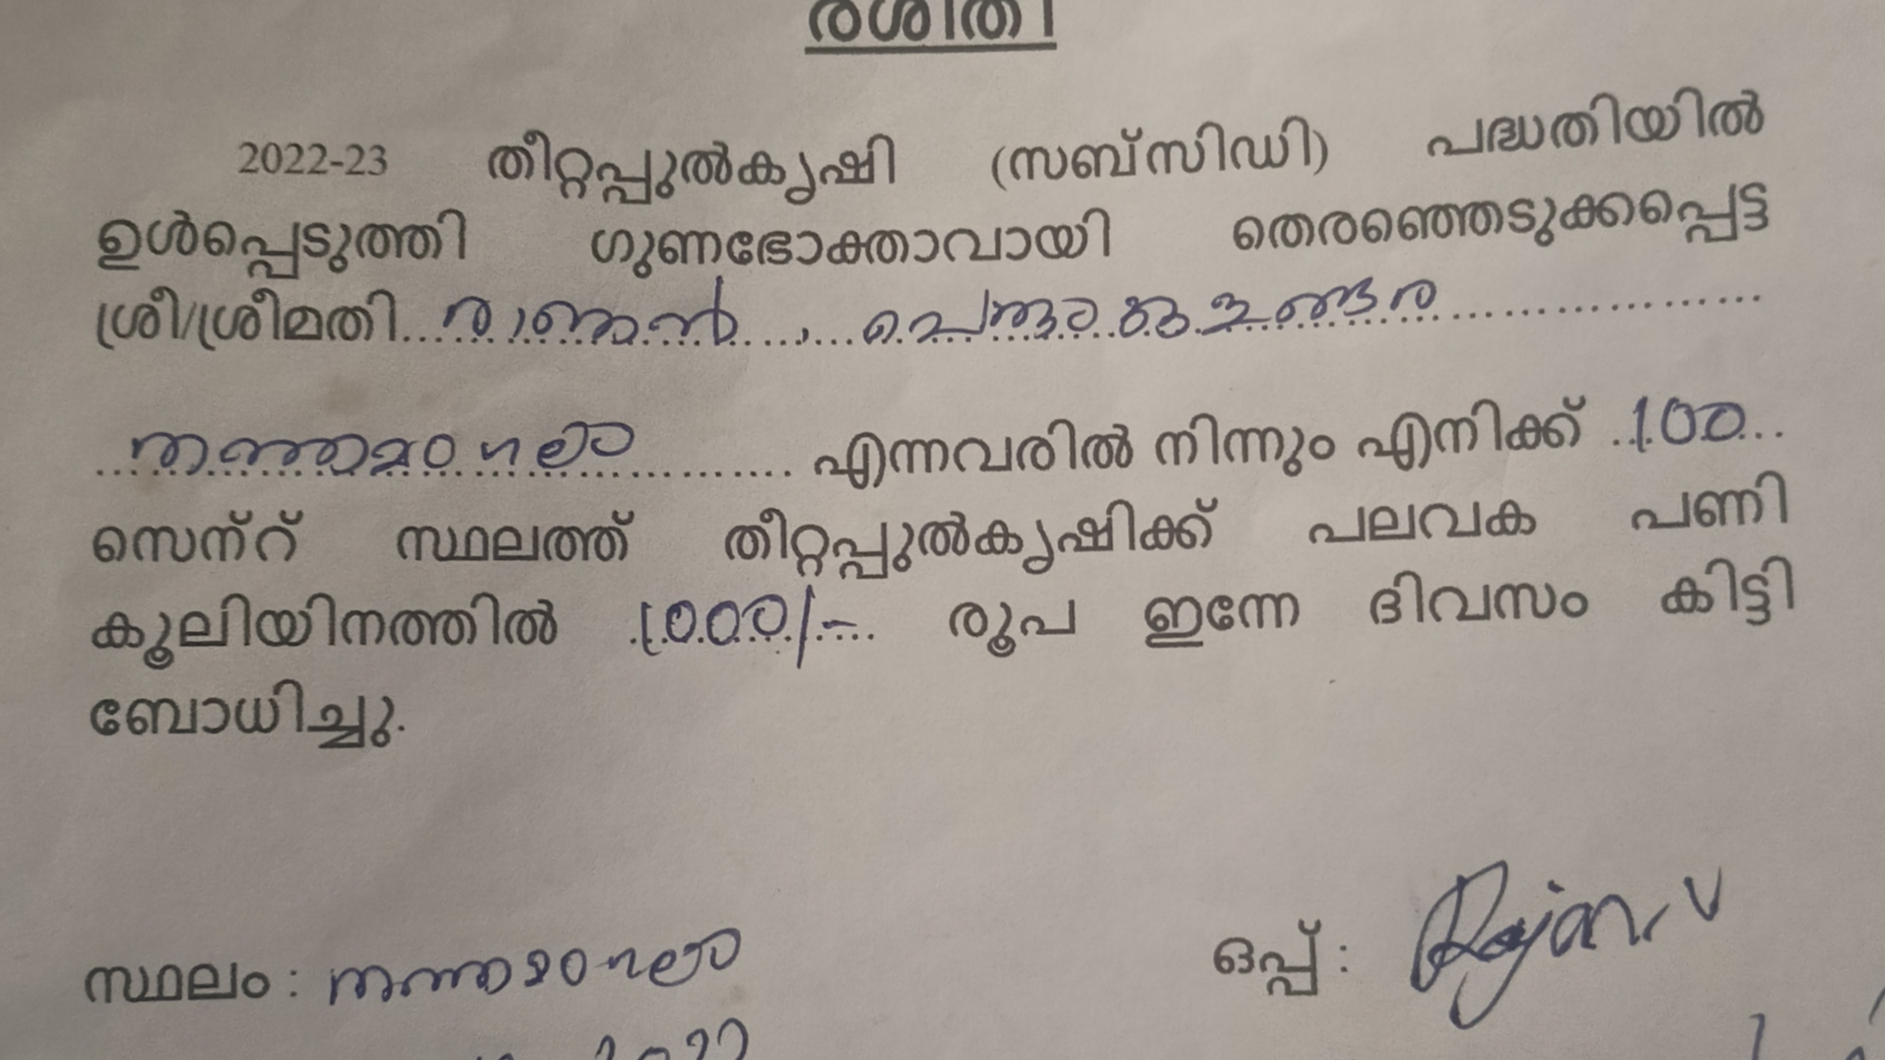 രശീതി
2022-23 തീറ്റപ്പുൽകൃഷി (സബ്സിഡി) പദ്ധതിയിൽ
ഉൾപ്പെടുത്തി ഗുണഭോക്താവായി തെരഞ്ഞെടുക്കപ്പെട്ട
ശ്രീ/ശ്രീമതി രാജൻ,
എന്നവരിൽ നിന്നും എനിക്ക് 100
സെന്റ് സ്ഥലത്ത് തീറ്റപ്പുൽകൃഷിക്ക് പലവക പണി
കൂലിയിനത്തിൽ 1000/- രൂപ ഇന്നേ ദിവസം കിട്ടി
ബോധിച്ചു.
സ്ഥലം : ഒപ്പ് : Rajan. V